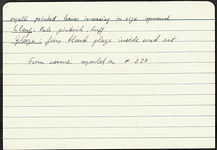 small pointed leaves increasing in size upward
Clay: Pale pinkish, buff
Glaze: fine black glaze inside and out
From same mould as P 378